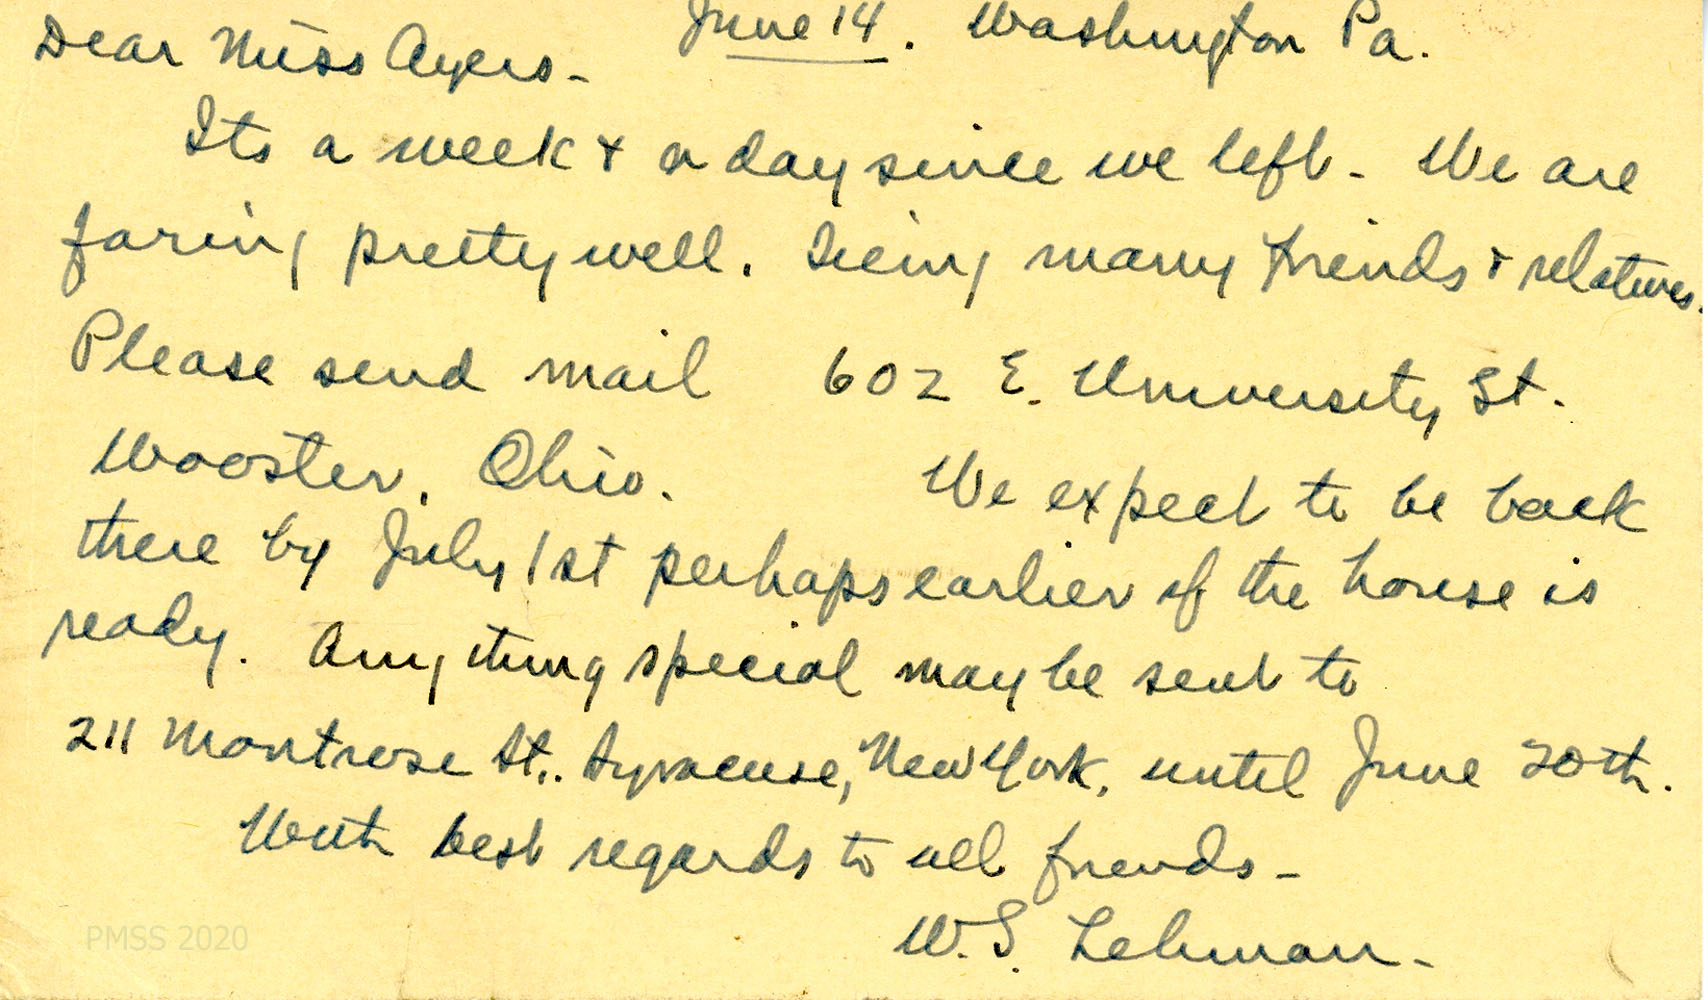 June 14. Washington Pa.
Dear Miss Ayers-
Its a week & a day since we left - We are
faring pretty well. Seeing many friends & relatives.
Please send mail 602 E. University St.
Wooster, Ohio. We expect to be back
there by July 1st perhaps earlier if the house is
ready. Any thing special may be sent to
211 Montrose St., Syracuse, New York, until June 20th.
With best regards to all friends -
W.S. Lehman -
PMSS 2020